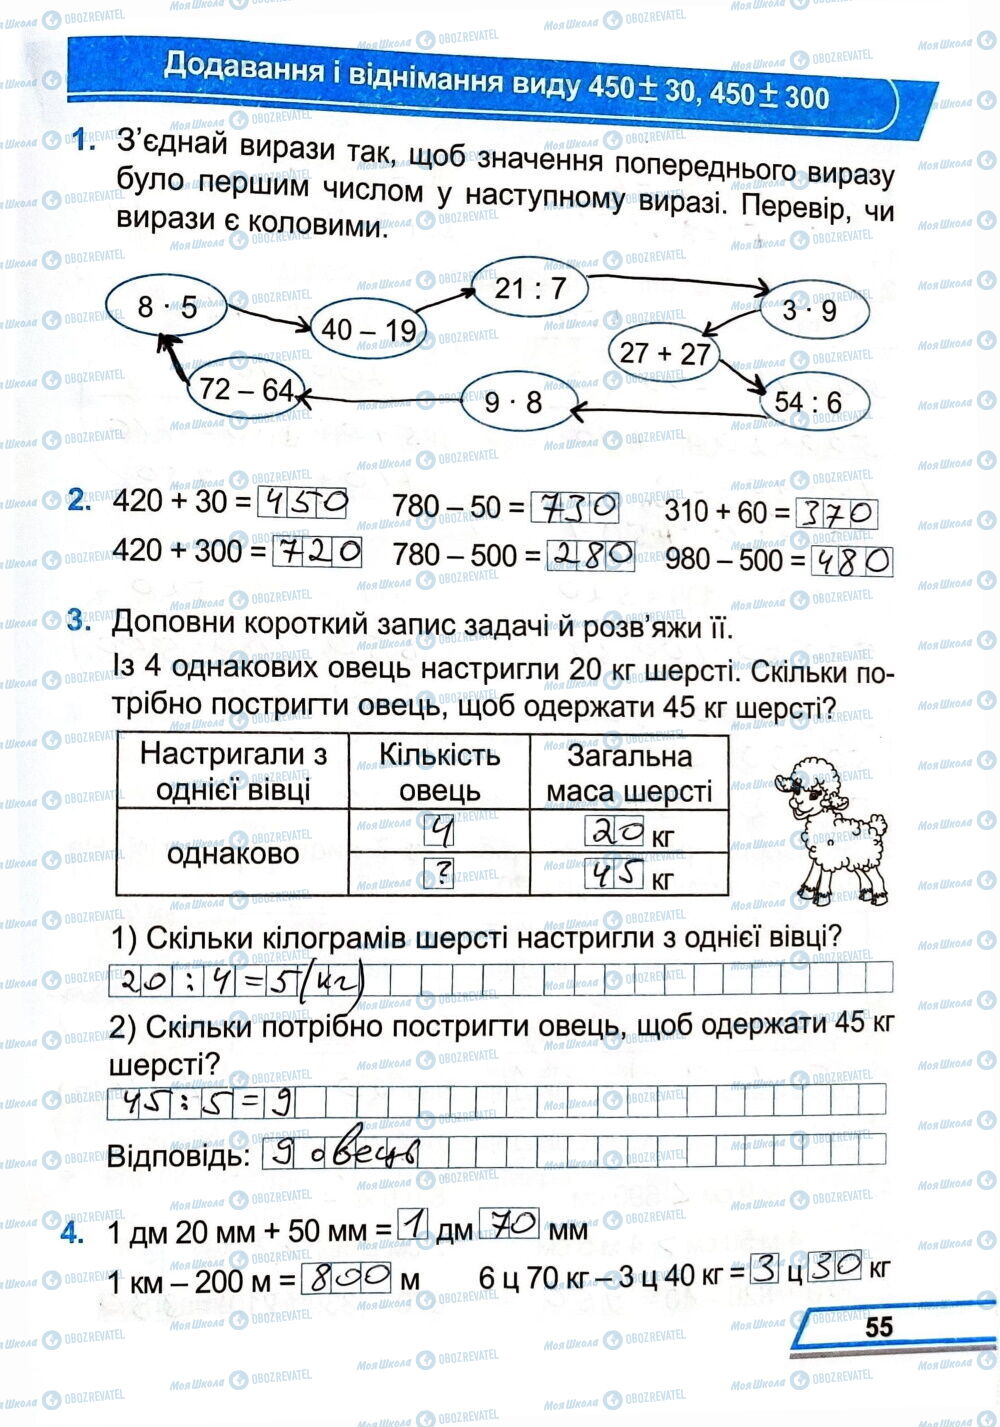 Додавання і віднімання виду 450 ± 30, 450 ± 300
1. З'єднай вирази так, щоб значення попереднього виразу
було першим числом у наступному виразі. Перевір, чи
вирази є коловими.
8 · 5
40 – 19
21 : 7
3 · 9
27 + 27
72 – 64
9 · 8
54 : 6
2. 420 + 30 = 450 780 – 50 = 730 310 + 60 = 370
420 + 300 = 720 780 – 500 = 280 980 – 500 = 480
3. Доповни короткий запис задачі й розв'яжи її.
Із 4 однакових овець настригли 20 кг шерсті. Скільки по-
трібно постригти овець, щоб одержати 45 кг шерсті?
Настригали з однієї вівці
Кількість овець
Загальна маса шерсті
однаково
4
20 кг
?
45 кг
1) Скільки кілограмів шерсті настригли з однієї вівці?
20 : 4 = 5 (кг)
2) Скільки потрібно постригти овець, щоб одержати 45 кг
шерсті?
45 : 5 = 9
Відповідь: 9 овець
4. 1 дм 20 мм + 50 мм = 1 дм 70 мм
1 км – 200 м = 800 м 6 ц 70 кг – 3 ц 40 кг = 3 ц 30 кг
55
МояШкола OBOZREVATEL